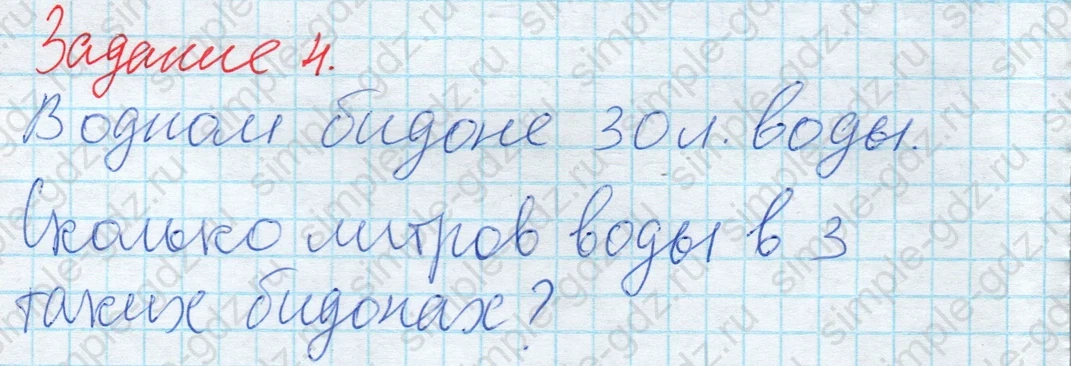 Задание 4.
В одном бидоне 30 л. воды.
Сколько литров воды в 3
таких бидонах?